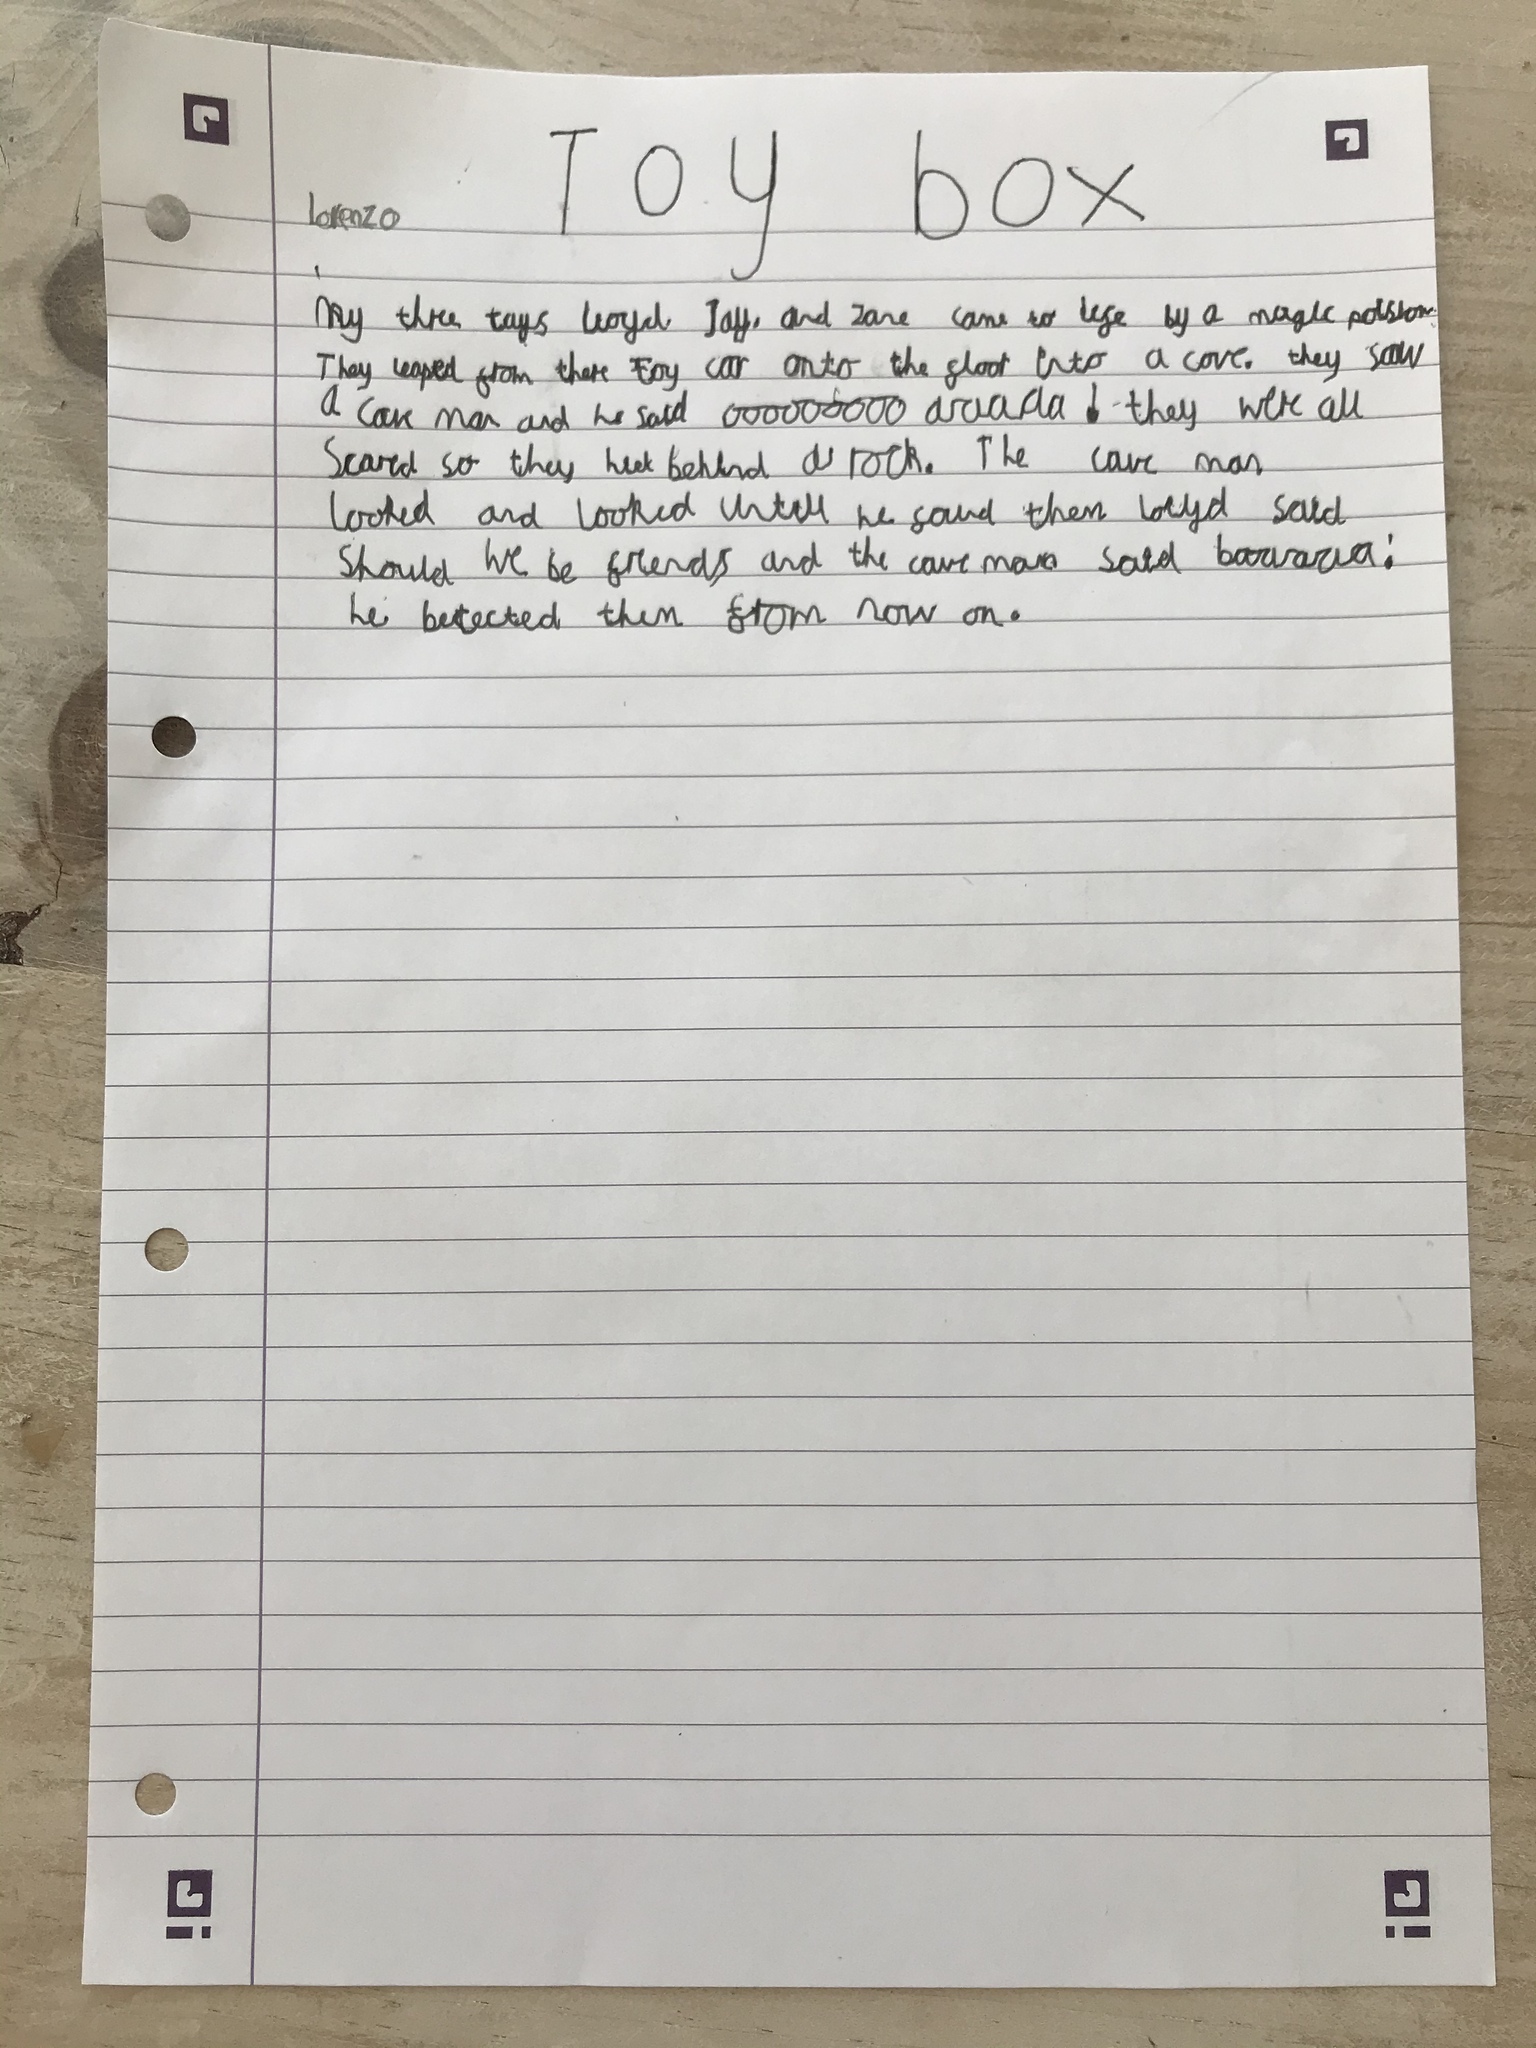 Toy box
lorenzo
My three toys lloyd Jay, and zane came to life by a magic potsion.
They leaped from there toy car onto the floor into a cave. they saw
a cave man and he said ooooooooo
they were all
scared so they behind a rock. The cave man
looked and looked untill he found them said
should we be friends and the cave man said
he betected them from now on.